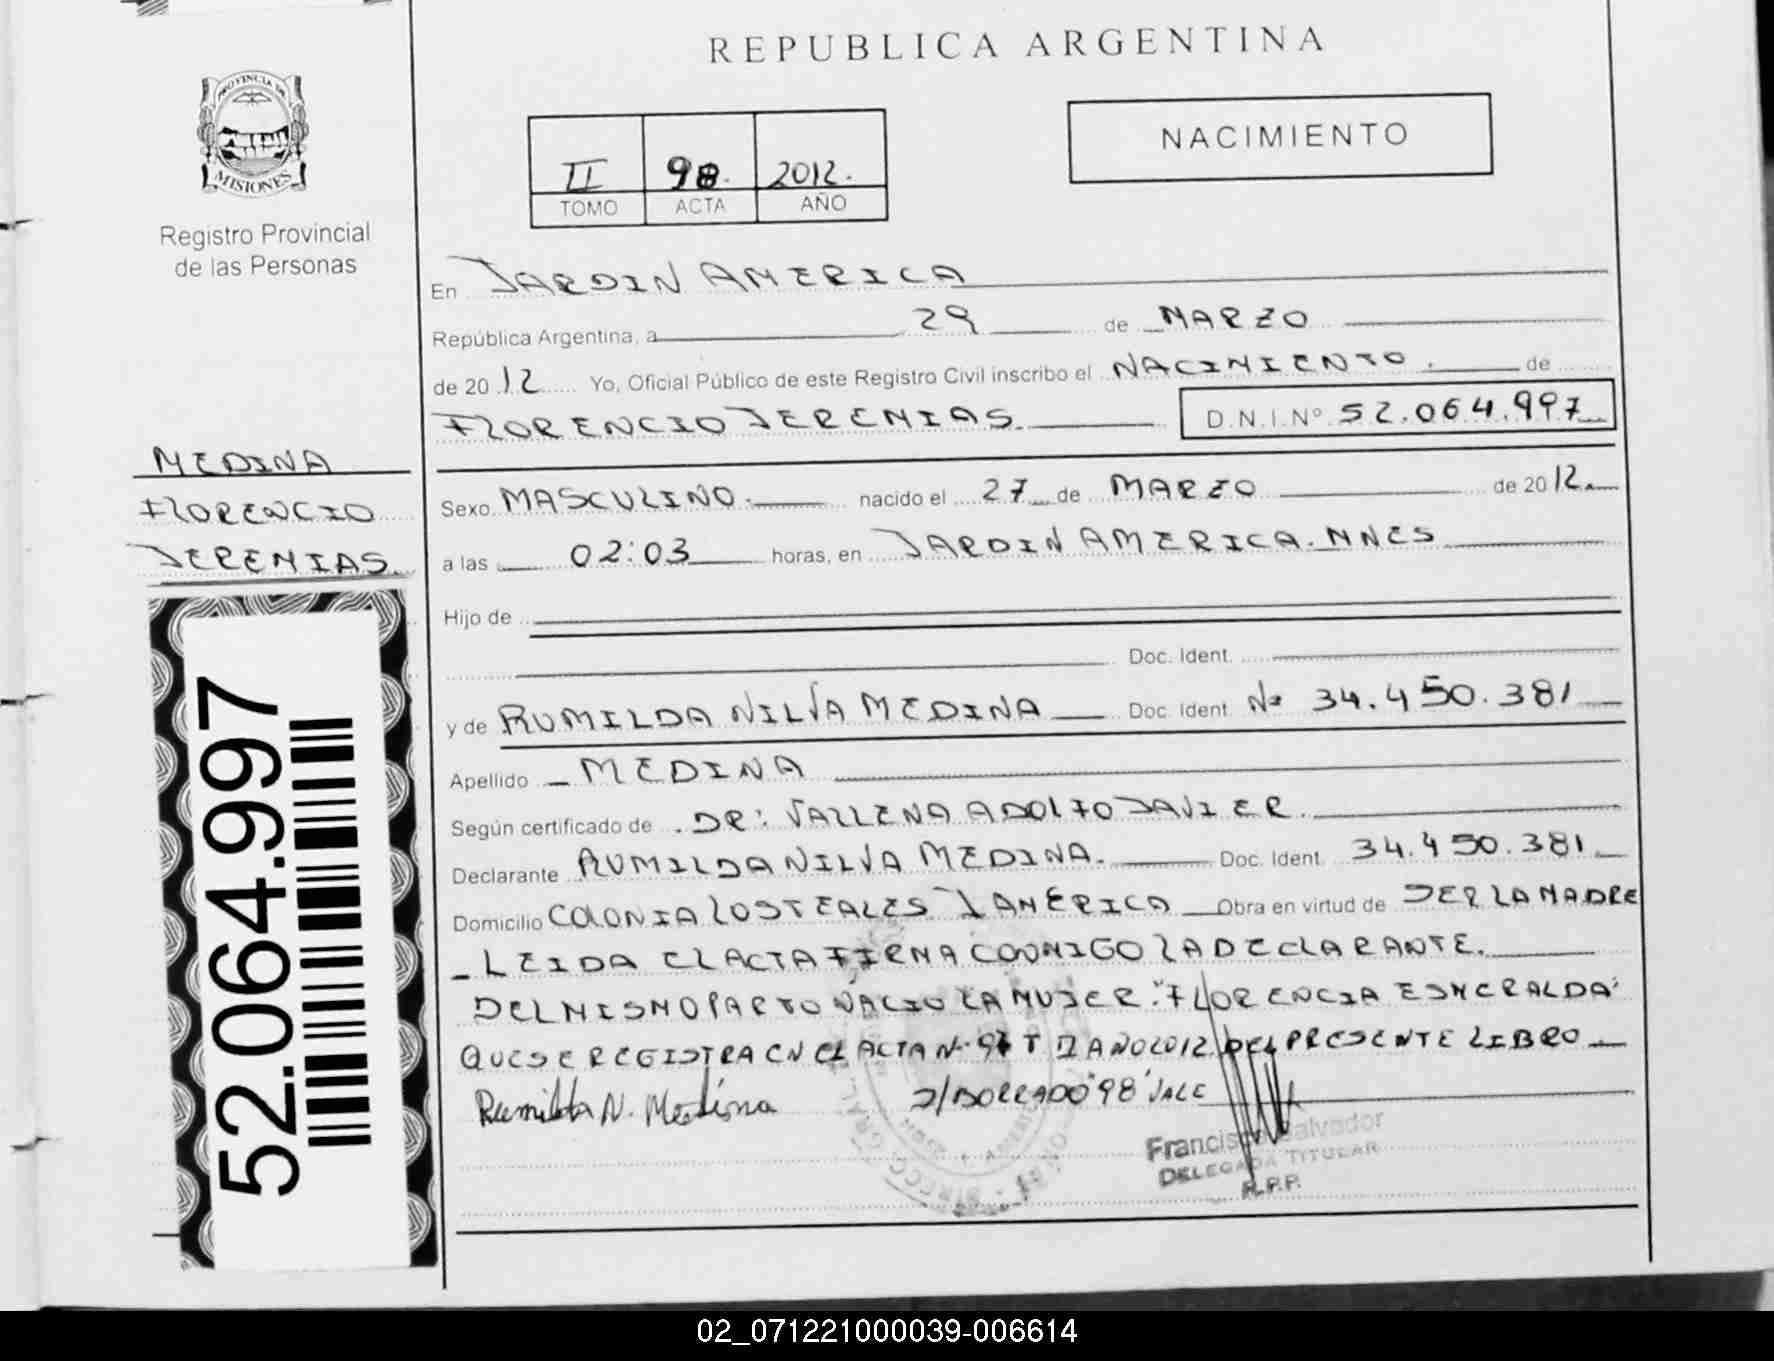 REPUBLICA ARGENTINA
PROVINCIA DE
MISIONES
Registro Provincial
de las Personas
NACIMIENTO
II 98. 2012.
TOMO ACTA AÑO
En JARDIN AMERICA
República Argentina, a 29 de MARZO
de 2012 Yo, Oficial Público de este Registro Civil inscribo el NACIMIENTO. de
FLORENCIO JEREMIAS. D.N.I.Nº 52.064.997
MEDINA
FLORENCIO
JEREMIAS.
52.064.997
Sexo MASCULINO. nacido el 27 de MARZO de 2012.
a las 02:03 horas, en JARDIN AMERICA. MNES
Hijo de
Doc. Ident.
y de RUMILDA NILVA MEDINA Doc. Ident. Nº 34.450.381
Apellido MEDINA
Según certificado de DR: VALLENA ADOLFO JAVIER.
Declarante RUMILDA NILVA MEDINA. Doc. Ident. 34.450.381
Domicilio COLONIA LOS TEALES J AMERICA Obra en virtud de SER LA MADRE
LEIDA EL ACTA FIRMA CONMIGO LA DECLARANTE.
DEL MISMO PARTO NACIO LA MUJER: "FLORENCIA ESMERALDA"
QUE SE REGISTRA EN EL ACTA Nº 97 T II AÑO 2012 DEL PRESENTE LIBRO
Rumilda N. Medina S/BORRADO "98" VALE
Francisca Salvador
DELEGADA TITULAR
R.P.P.
02_071221000039-006614